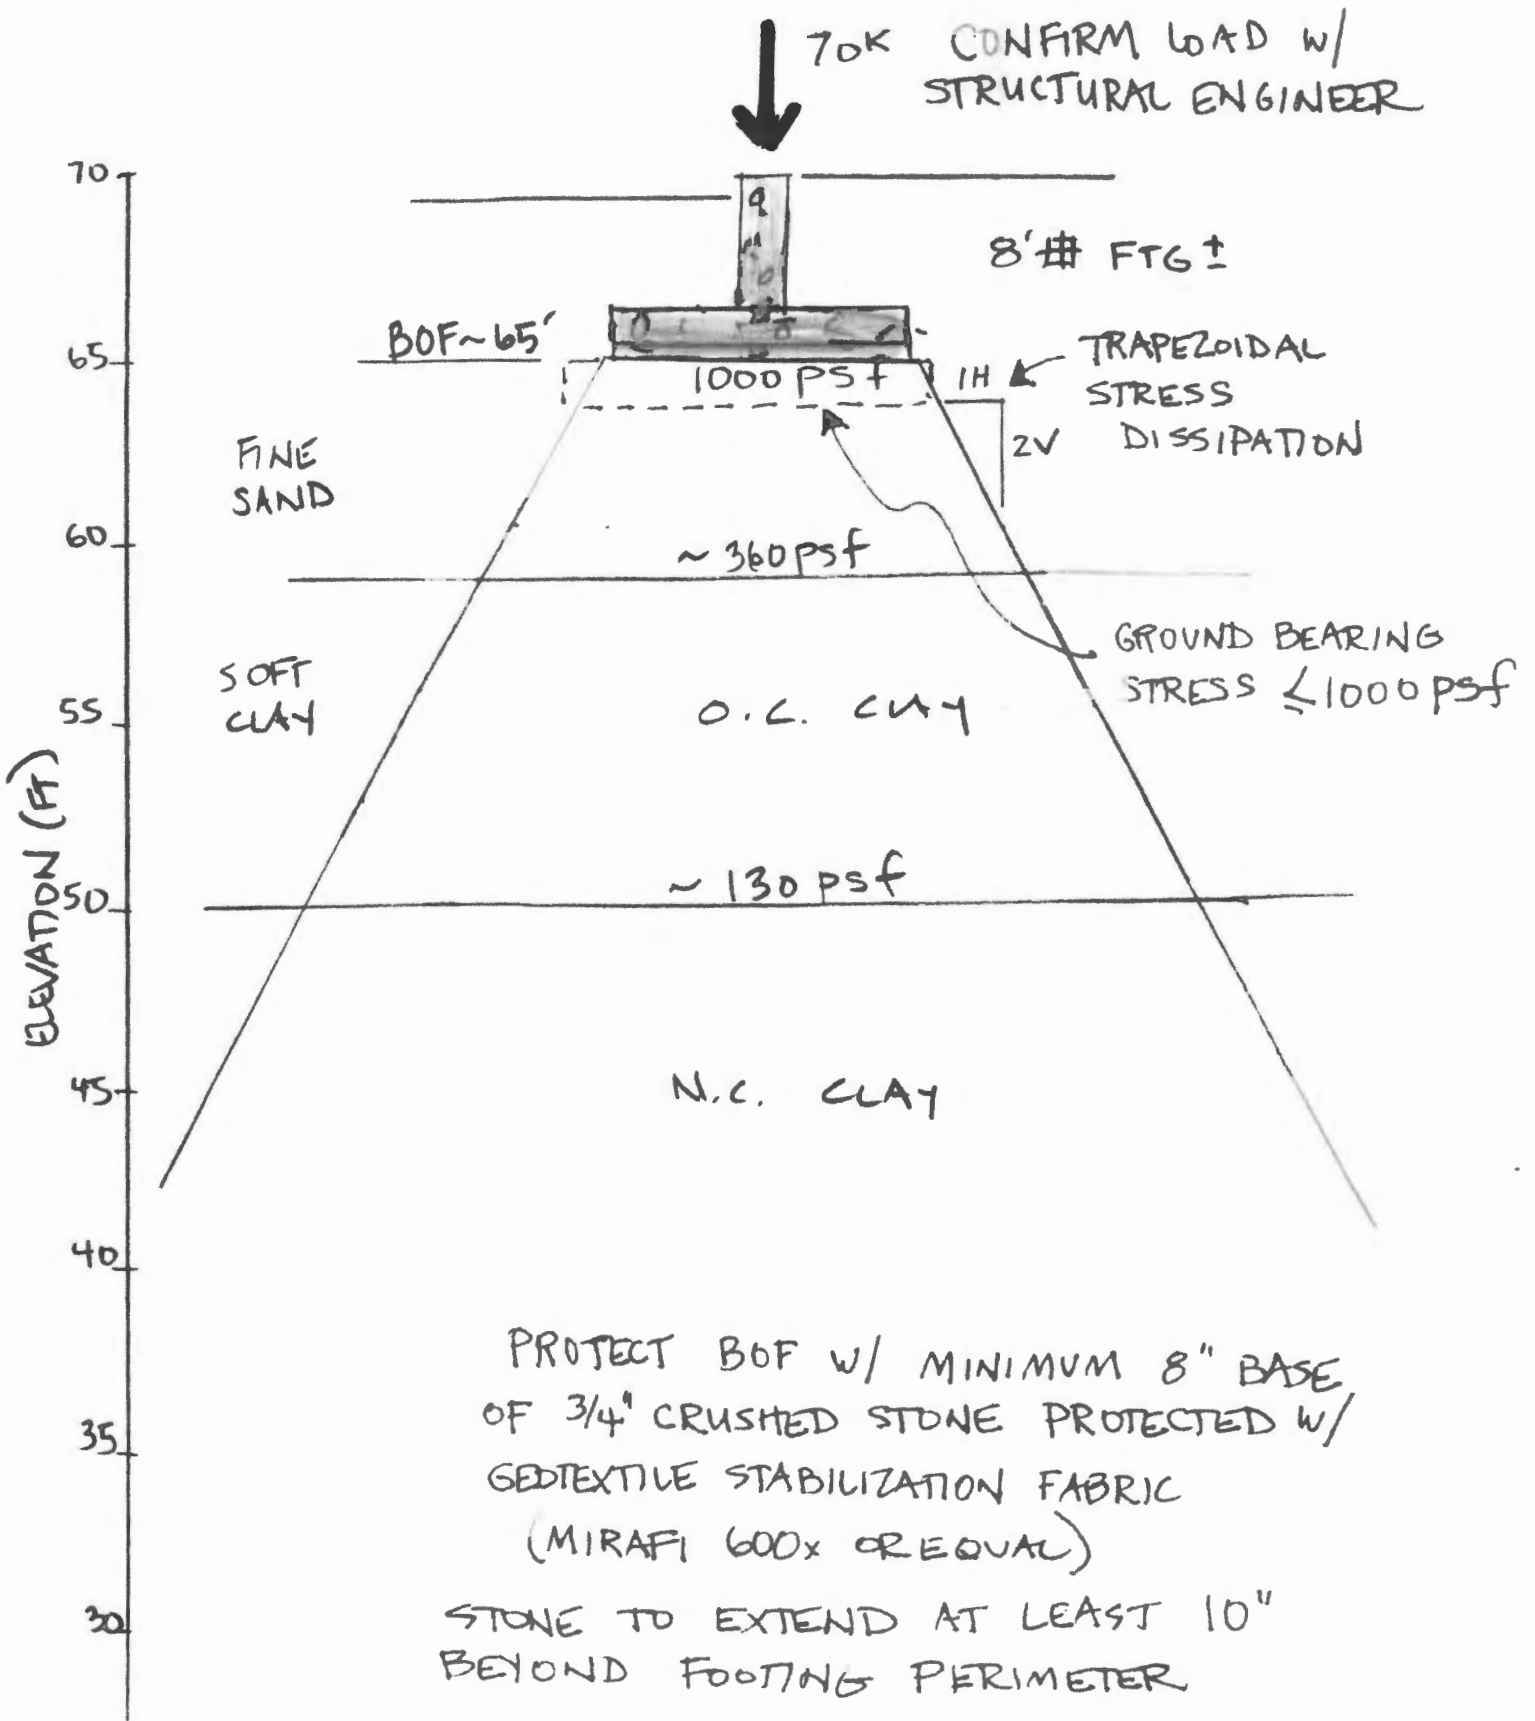 70K CONFIRM LOAD W/
STRUCTURAL ENGINEER
70
8'# FTG ±
BOF~65'
65
1000 psf
1H
TRAPEZOIDAL
STRESS
DISSIPATION
2V
FINE
SAND
60
~360psf
GROUND BEARING
STRESS ≤1000psf
SOFT
CLAY
55
O.C. CLAY
ELEVATION (FT)
50
~130 psf
45
N.C. CLAY
40
PROTECT BOF W/ MINIMUM 8" BASE
OF 3/4" CRUSHED STONE PROTECTED W/
35
GEOTEXTILE STABILIZATION FABRIC
(MIRAFI 600x OR EQUAL)
STONE TO EXTEND AT LEAST 10"
30
BEYOND FOOTING PERIMETER